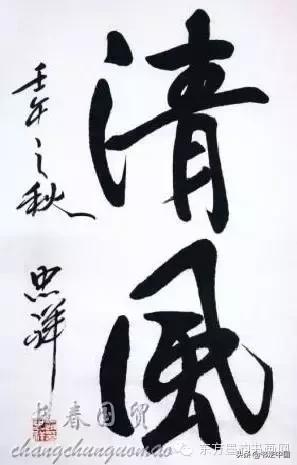 清風
壬午之秋
忠祥
长春国贸
changchunguomao
东方墨韵书画网
头条@书法中国